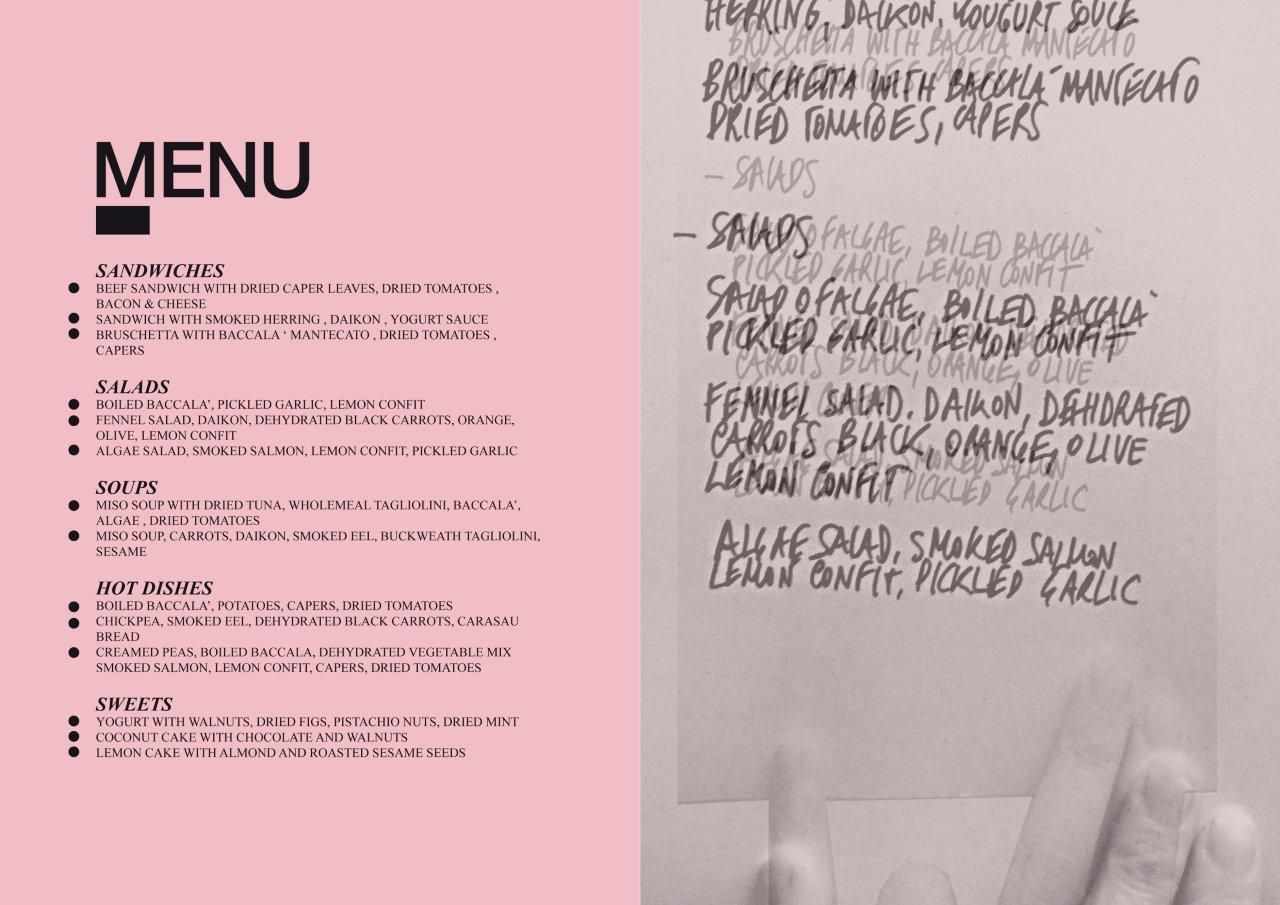 MENU
SANDWICHES
BEEF SANDWICH WITH DRIED CAPER LEAVES, DRIED TOMATOES ,
BACON & CHEESE
SANDWICH WITH SMOKED HERRING , DAIKON , YOGURT SAUCE
BRUSCHETTA WITH BACCALA ‘ MANTECATO , DRIED TOMATOES ,
CAPERS
SALADS
BOILED BACCALA’, PICKLED GARLIC, LEMON CONFIT
FENNEL SALAD, DAIKON, DEHYDRATED BLACK CARROTS, ORANGE,
OLIVE, LEMON CONFIT
ALGAE SALAD, SMOKED SALMON, LEMON CONFIT, PICKLED GARLIC
SOUPS
MISO SOUP WITH DRIED TUNA, WHOLEMEAL TAGLIOLINI, BACCALA’,
ALGAE , DRIED TOMATOES
MISO SOUP, CARROTS, DAIKON, SMOKED EEL, BUCKWEATH TAGLIOLINI,
SESAME
HOT DISHES
BOILED BACCALA’, POTATOES, CAPERS, DRIED TOMATOES
CHICKPEA, SMOKED EEL, DEHYDRATED BLACK CARROTS, CARASAU
BREAD
CREAMED PEAS, BOILED BACCALA, DEHYDRATED VEGETABLE MIX
SMOKED SALMON, LEMON CONFIT, CAPERS, DRIED TOMATOES
SWEETS
YOGURT WITH WALNUTS, DRIED FIGS, PISTACHIO NUTS, DRIED MINT
COCONUT CAKE WITH CHOCOLATE AND WALNUTS
LEMON CAKE WITH ALMOND AND ROASTED SESAME SEEDS
HERRING, DAIKON, YOUGURT SOUCE
BRUSCHETTA WITH BACCALA MANTECATO
BRUSCHETTA WITH BACCALA' MANTECATO
DRIED TOMATOES, CAPERS
- SALADS
- SALADS
OF ALGAE, BOILED BACCALA'
PICKLED GARLIC LEMON CONFIT
SALAD OF ALGAE, BOILED BACCALA'
PICKLED GARLIC, LEMON CONFIT
CARROTS BLACK, ORANGE, OLIVE
FENNEL SALAD. DAIKON, DEHDRATED
CARROTS BLACK, ORANGE, OLIVE
SMOKED SALMON
LEMON CONFIT
PICKLED GARLIC
ALGAE SALAD, SMOKED SALMON
LEMON CONFIT, PICKLED GARLIC